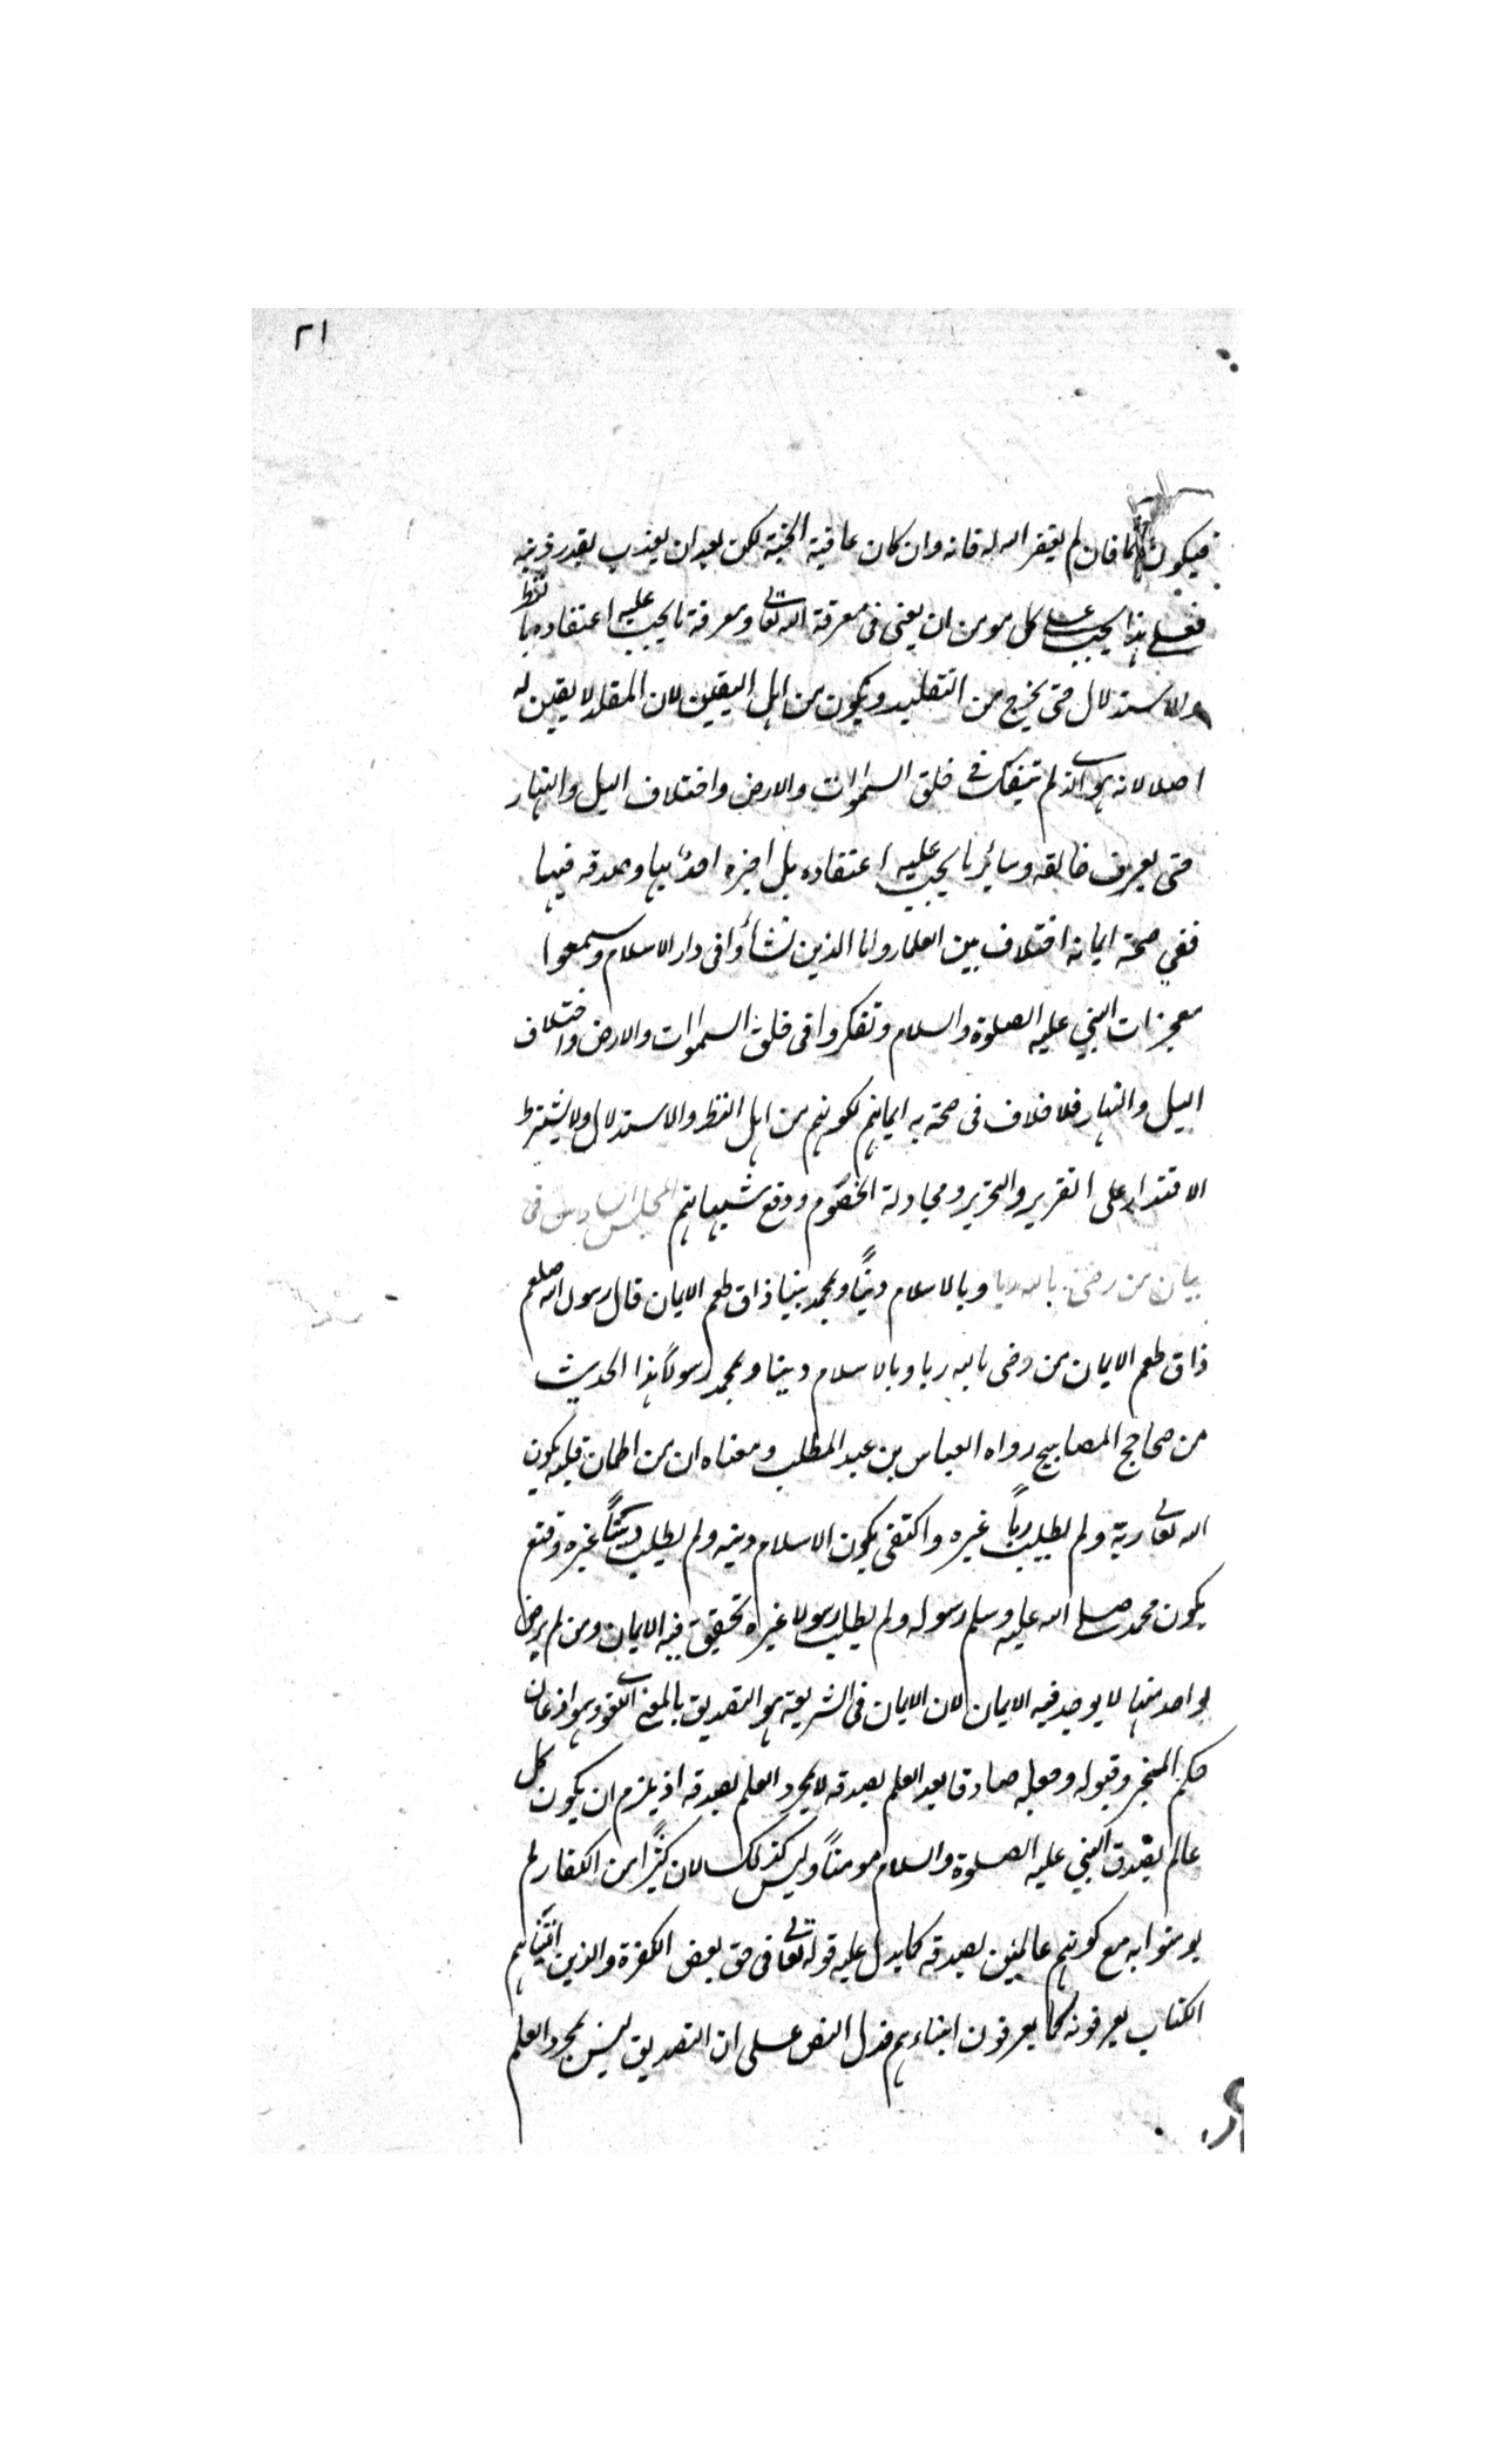 ٢١
فيكون آثما فان لم يغفر الله له فانه وان كان عاقبته الجنة لكن بعد ان يعذب بقدر ذنبه
فعلى هذا يجب على كل مومن ان يعنى فى معرفة الله تعالى ومعرفة ما يجب عليه اعتقاده بالنظر
والاستدلال حتى يخرج من التقليد ويكون من اهل اليقين لان المقلد لا يقين له
اصلا لانه هو الذى لم يتفكر فى خلق السموات والارض واختلاف اليل والنهار
حتى يعرف خالقه وسائر ما يجب عليه اعتقاده بل اخبره احد بها وصدقه فيها
ففي صحة ايمانه اختلاف بين العلماء واما الذين نشأوا فى دار الاسلام وسمعوا
معجزات النبي عليه الصلوة والسلام وتفكروا فى خلق السموات والارض واختلاف
اليل والنهار فلا خلاف فى صحة ايمانهم لكونهم من اهل النظر والاستدلال ولا يشترط
الاقتدار على التقرير والتحرير ومجادلة الخصوم ودفع شبهاتهم المجلس السادس فى
بيان من رضى بالله ربا وبالاسلام دينًا وبمحمد نبيا ذاق طعم الايمان قال رسول الله صلعم
ذاق طعم الايمان من رضى بالله ربا وبالاسلام دينا وبمحمد رسولًا هذا الحديث
من صحاح المصابيح رواه العباس بن عبد المطلب ومعناه ان من اطمان قلبه بكون
الله تعالى ربه ولم يطلب ربًا غيره واكتفى بكون الاسلام دينه ولم يطلب دينًا غيره وقنع
بكون محمد صلى الله عليه وسلم رسوله ولم يطلب رسولا غيره تحقيق فيه الايمان ومن لم يرض
بواحد منها لا يوجد فيه الايمان لان الايمان فى الشريعة هو التصديق بالمعنى اللغوى وهو اذعان
حكم المخبر وقبوله وجعله صادقا بعد العلم بصدقه لا بمجرد العلم بصدقه اذ يلزم ان يكون كل
عالم بصدق النبي عليه الصلوة والسلام مومنًا وليس كذلك لان كثيرًا من الكفار لم
يومنوا به مع كونهم عالمين بصدقه كما يدل عليه قوله تعالى فى حق بعض الكفرة والذين اتيناهم
الكتاب يعرفونه كما يعرفون ابناءهم فدل النص على ان التصديق ليس بمجرد العلم